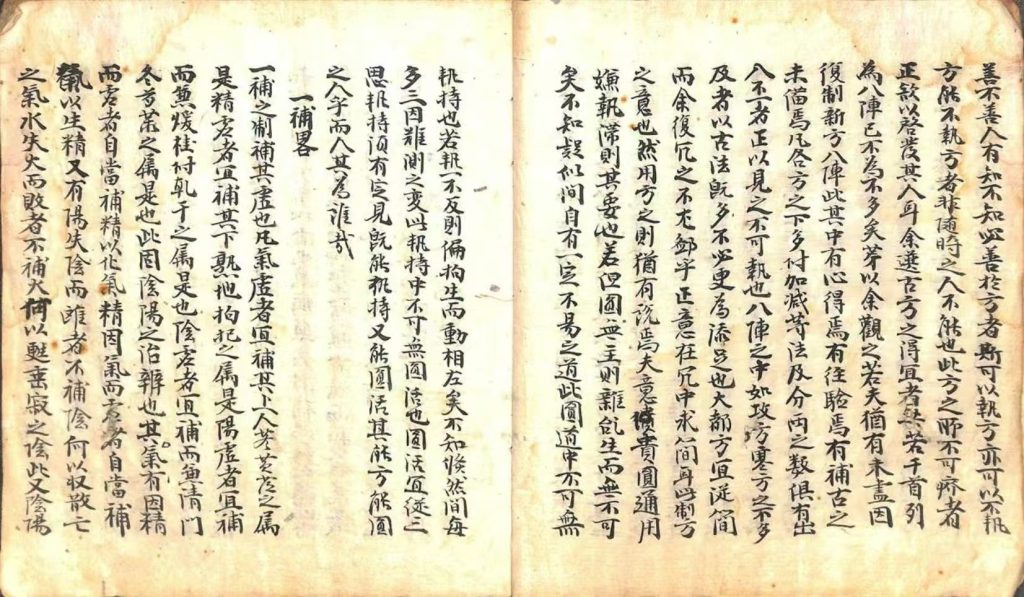 善不善人有知不知必善於方者斯可以執方亦可以不執
方能不執方者非隨時之人不能也此方之所不可廢者
正欲以啓發其人耳余選古方之得宜者共若干首列
為八陣已不為不多矣苐以余觀之若夫猶有未盡因
復制新方八陣此其中有心得焉有徃驗焉有補古之
未俻焉凡各方之下多付加减等法及分两之数俱有出
入不一者正以見之不可執也八陣之中如攻方寒方之不多
及者以古法既多不必更為添足也大都方宜從簡
而余復冗之不
正意在冗中求簡耳此制方
之意也然用方之則猶有說焉夫意
貴圓通用
嫌執滯則其要也若但圓無主則雜乱生而無不可
矣不知疑似間自有一定不易之道此圓道中不可無
执持也若执一不反則偏拘生而動相左矣不知倏然間每
多三因難測之変此执持中不可無圓活也圓活宜從三
思执持須有定見既能执持又能圓活其能方能圓
之人乎而人其為誰哉
一補畧
一補之制補其虚也凢氣虚者宜補其上人参芪
之属
是精虚者宜補其下熟地拘杞之属是陽虚者宜補
而兼煖桂付乹干之属是也陰虚者宜補而兼清門
冬芍
之属是也此固陰陽之治辨也其氣有因精
而虚者自當補精以化氣精因氣而虚者自當補
氣以生精又有陽失陰而
者不補陰何以収散亡
之氣水失火而敗者不補火何以甦垂寂之陰此又陰陽